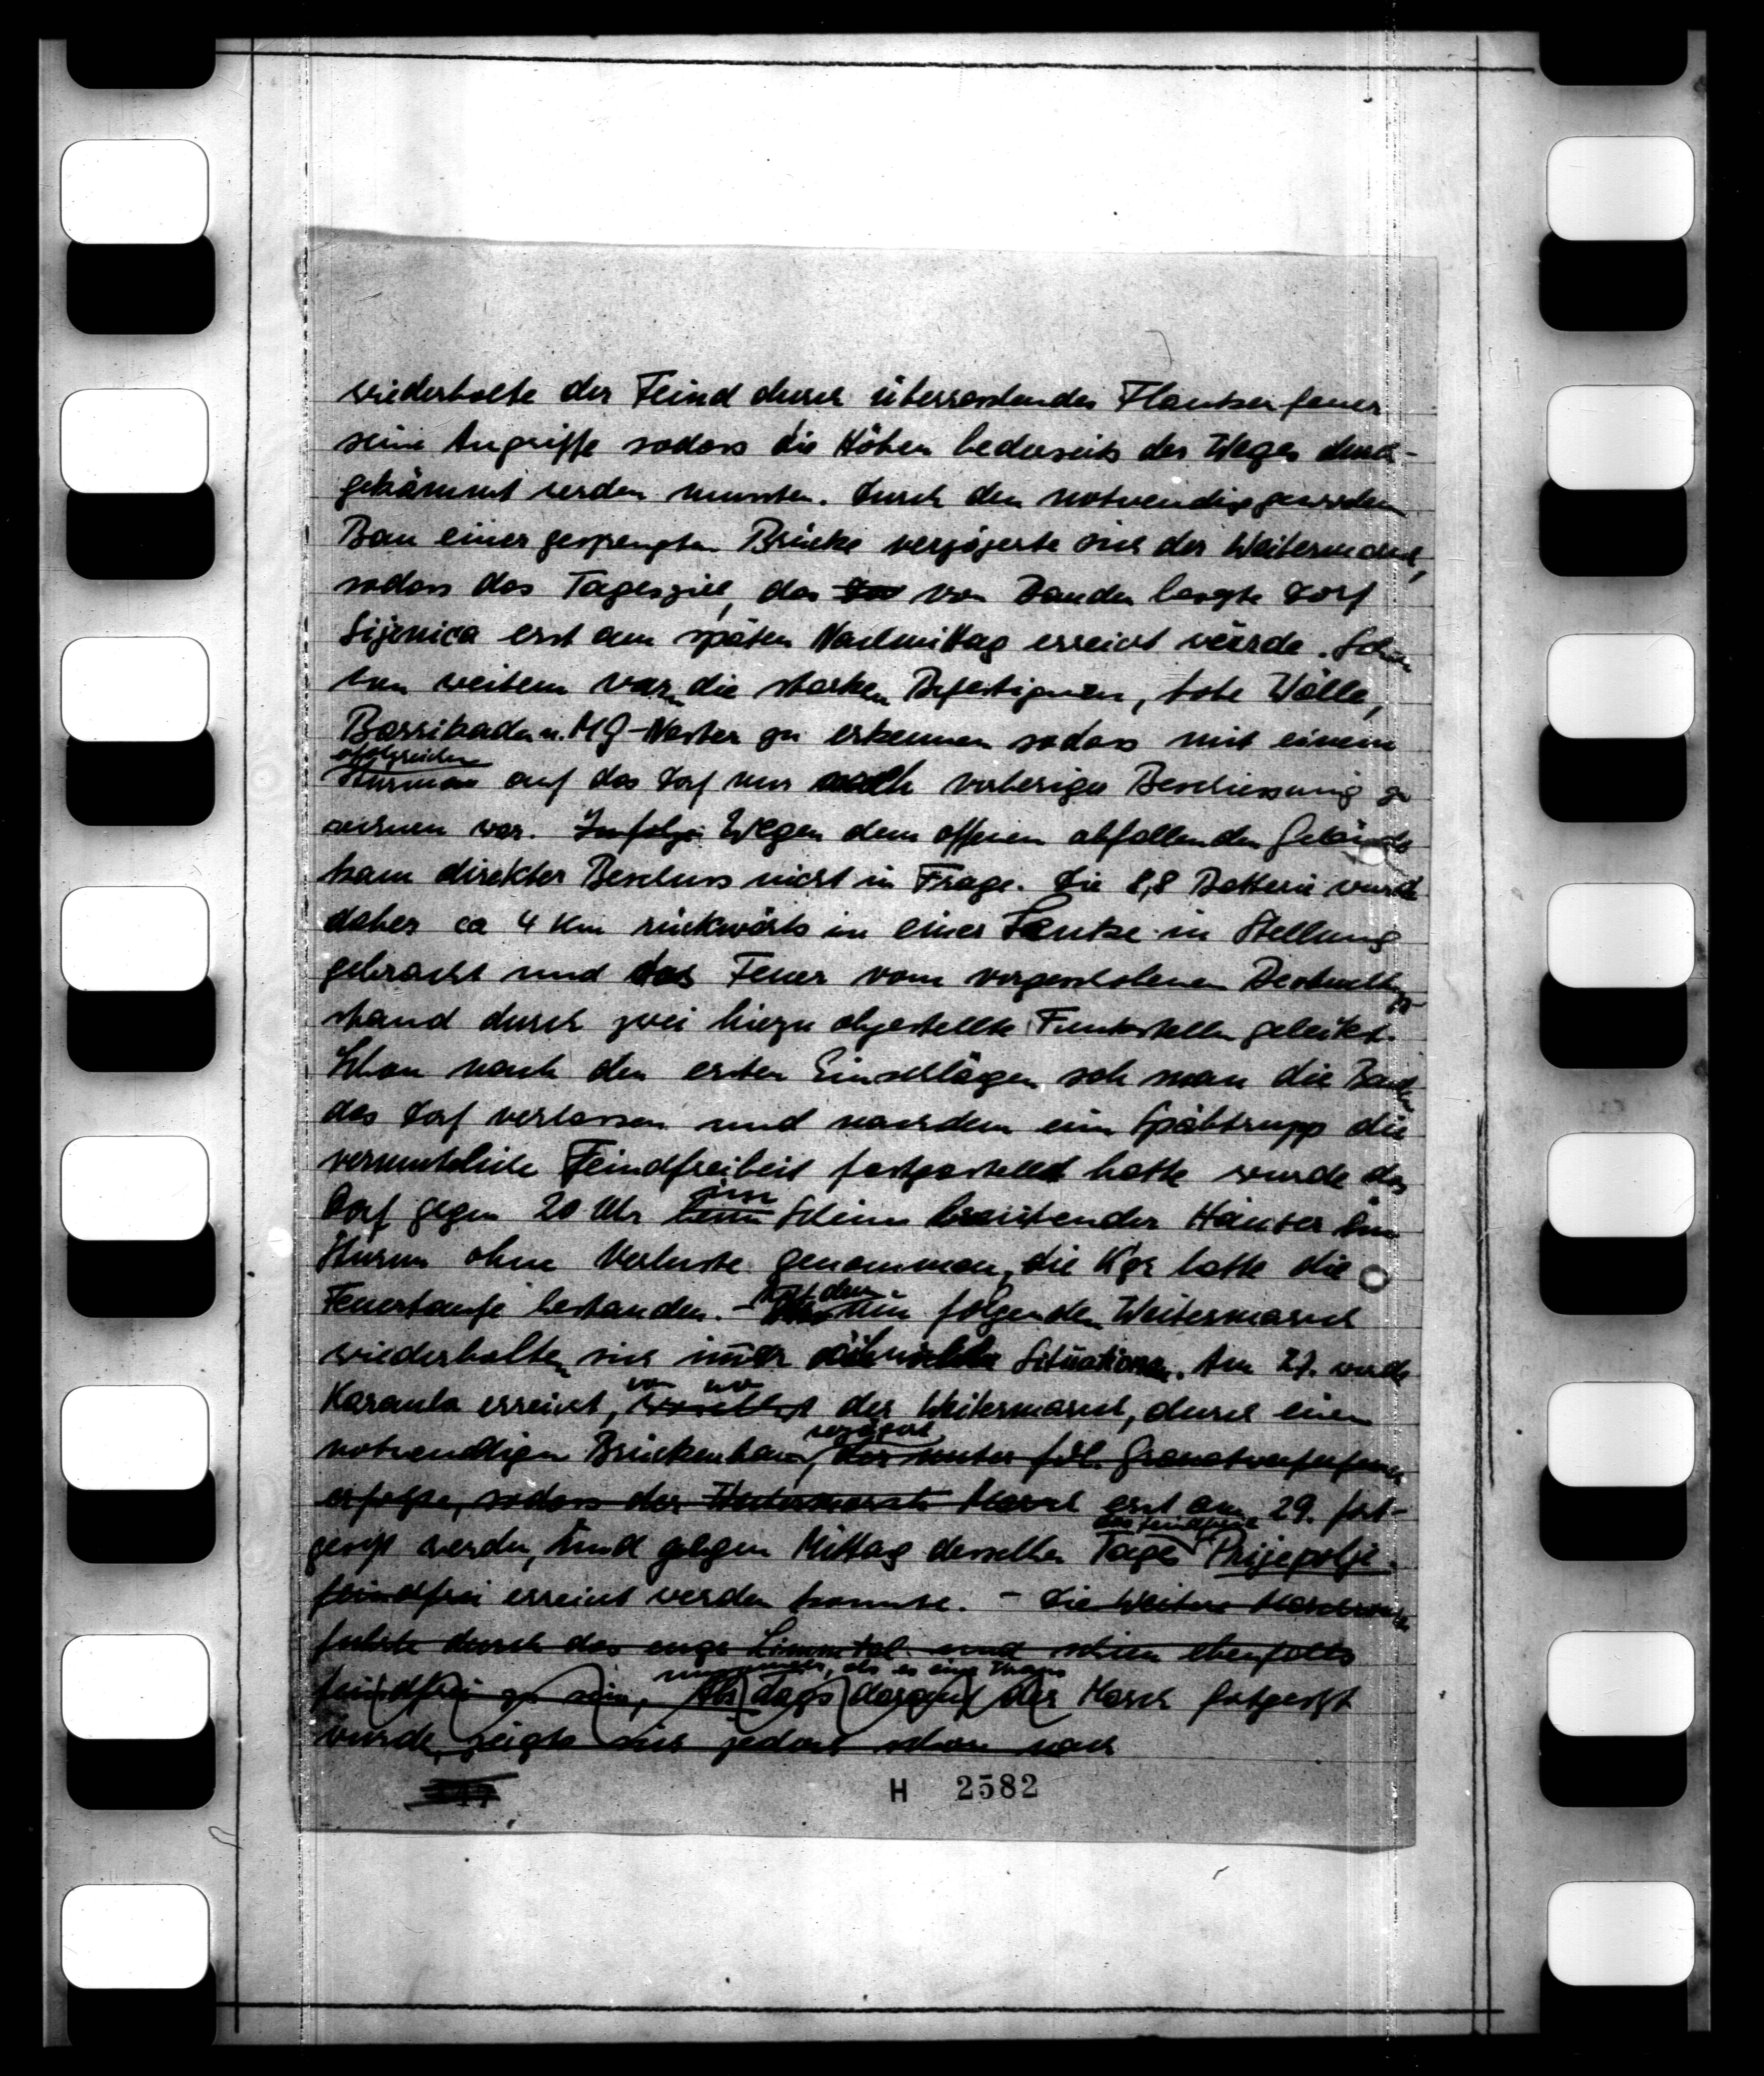 wiederholte der Feind durch überraschendes Flankenfeuer
seine Angriffe sodass die Höhen bederseits des Weges durch-
gekämmt werden mussten. Durch den notwendig gewordenen
Bau einer gesprengten Brücke verzögerte sich der Weitermarsch,
sodass das Tagesziel, das von Banden besetzte Dorf
Sijenica erst am späten Nachmittag erreicht würde. Schon
von weitem waren die starken Befestigungen, hohe Wälle,
Barrikaden u. MG-Nester zu erkennen sodass mit einem
erfolgreichen
Sturm auf das Dorf nur nach vorheriger Beschiessung zu
rechnen war. Infolge Wegen dem offenen abfallenden Gelände
kam direkter Beschuss nicht in Frage. Die 8,8 Batterie wurde
daher ca 4 km rückwärts in einer Senke in Stellung
gebracht und das Feuer vom vorgeschobenen Beobachtungs-
stand durch zwei hiezu abgestellte Funkstellen geleitet.
Schon nach den ersten Einschlägen sah man die Banden
das Dorf verlassen und nachdem ein Spähtrupp die
vermutliche Feindfreiheit festgestellt hatte wurde das
im
Dorf gegen 20 Uhr beim Schein brennender Häuser im
Sturm ohne Verluste genommen, die Kgr hatte die
Feuertaufe bestanden. -
Auf dem
folgenden Weitermarsch
wiederholten sich immer ähnliche Situationen. Am 27. wurde
von wo
Karaula erreicht, der Weitermarsch, durch einen
verzögert
notwendigen Brückenbau, der unter fdl. Granatwerferfeuer
erfolgte, sodass der Weitermarsch Marsch erst am 29. fort-
das feindfreie
gesetzt werden, und gegen Mittag desselben Tages Prijepolje
feindfrei erreicht werden konnte. - Die weitere Marschroute
führte durch das enge Limmtal und schien ebenfalls
feindfrei zu sein, Als tags darauf der Marsch fortgesetzt
wurde, zeigte sich jedoch schon nach
H 2582